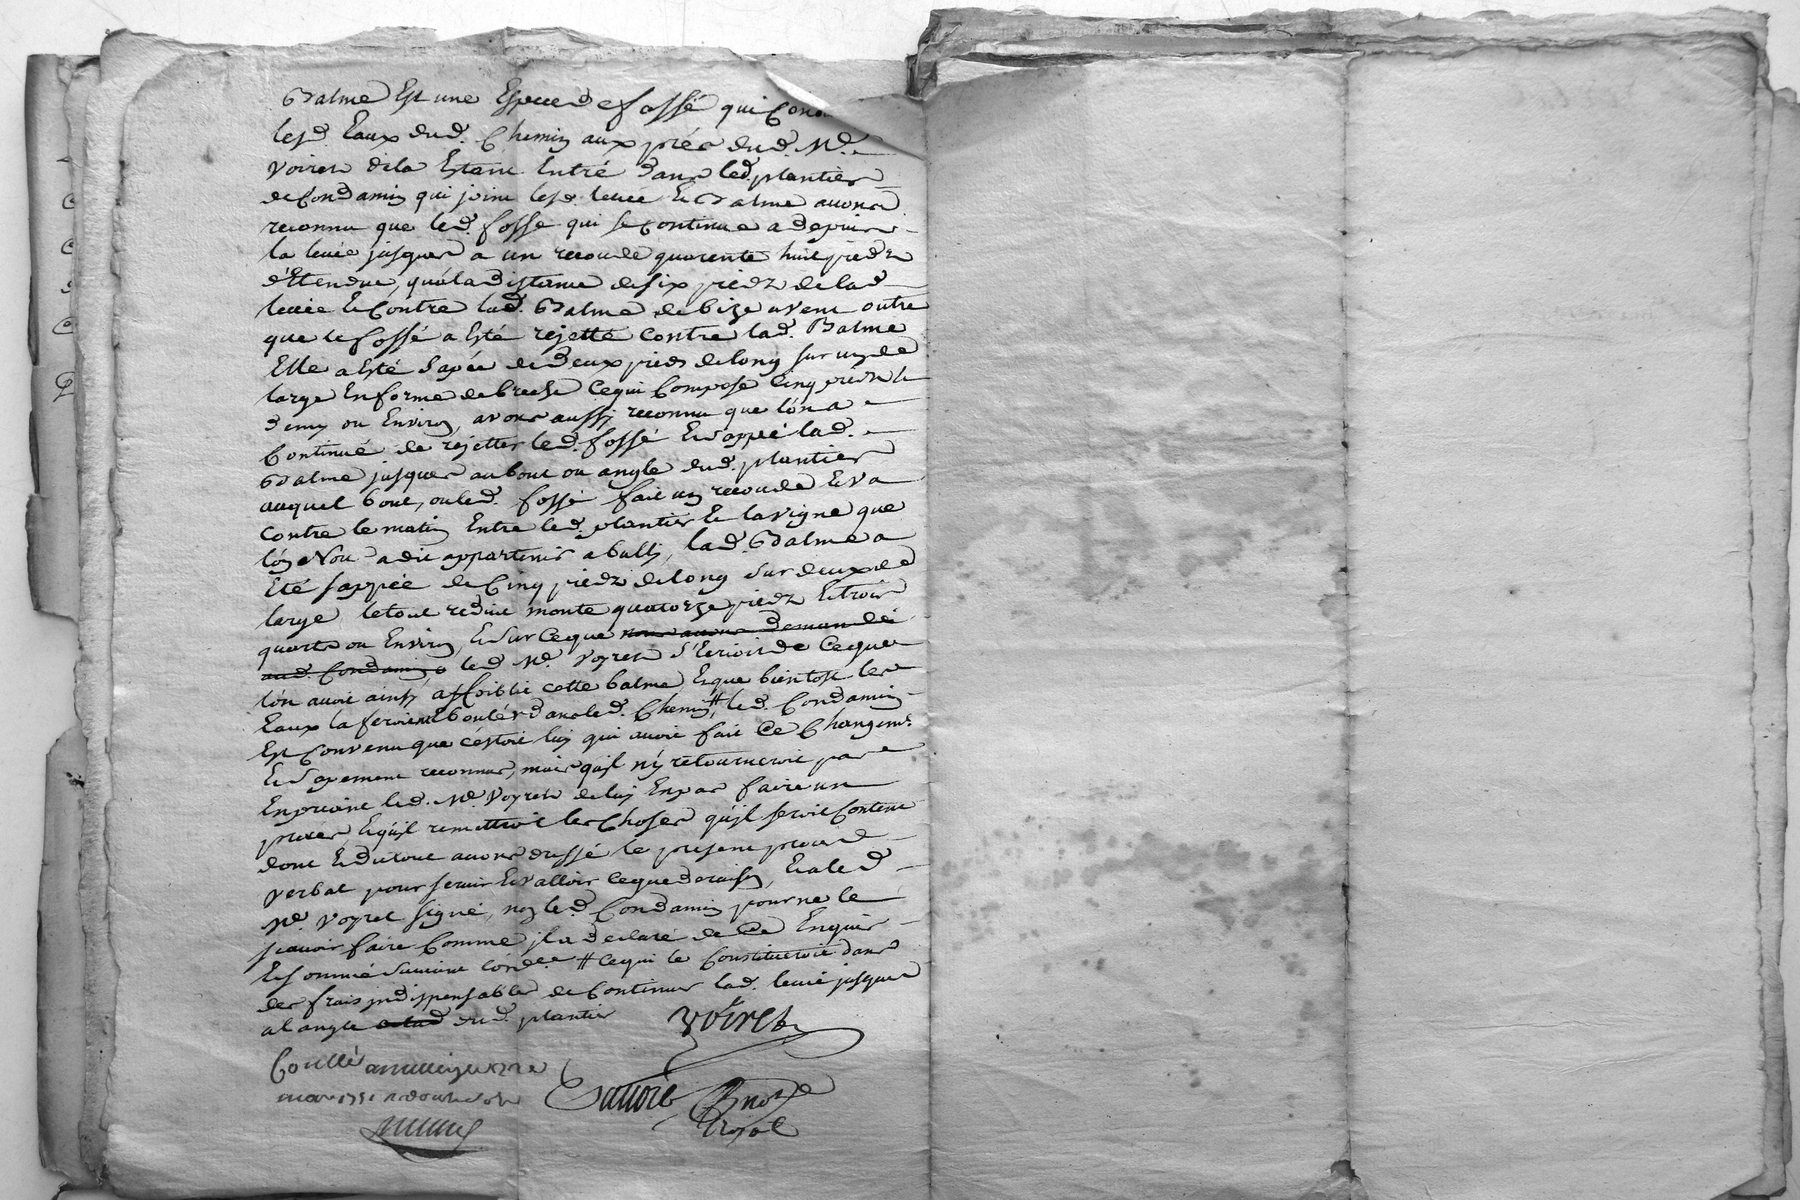 Balme Est une Espece de fossé qui Con
lesd. Eaux dud. Chemin aux prés dud. Mr.
Voiret de la Estant Entré dans led. plantier
de Condamin qui joint lesd. levée Et Balme avons
reconnu que led. fossé qui se Continue a depuis
la levée jusques a un recoude quarente huit piedz
d'Etendue, qu'a la distance de six piedz de lad.
levée Et Contre lad. Balme de bize a vent outre
que le fossé a Esté rejetté contre lad. Balme
Elle a Esté sapée de Deux pieds de long sur un de
large En forme de breche Ce qui Compose Cinq piedz Et
demy ou Environ, avons aussy reconnu que l'on a
Continué de rejetter led. fossé Et sappé lad.
Balme jusques au bout ou angle dud. plantier
auquel bout, ou led. fossé fait un recoude Et va
Contre le matin Entre led. plantier Et la vigne que
l'on Nou a dit appartenir a bully, lad. Balme a
Eté sappée de Cinq piedz de long sur deux de
large le tout reduit monte quatorze piedz Et trois
quarts ou Environ, Et sur Ce que nous avons demandé
aud. Condamin led. Mr. Voyret s'Ecrioit de Ce que
l'on avoit ainsy affoiblie cette balme Et que bientost les
Eaux la feroient Ebouler dans led. Chemin # led. Condamin
Est Convenu que c'estoit luy qui avoit fait Ce Changemt.
Et sapement reconnus, mais qu'il n'y retourneroit pas
En priant led. Mr. Voyret de luy En pas faire un
proces Et qu'il remettroit les Choses qu'il seroit Content
dont Et du tout avons dressé le present procès
verbal pour servir Et valloir Ce que de raison, Et a led.
Mr. Voyret signé, non led. Condamin pour ne le
sçavoir faire Comme il a declaré de Ce Enquis
Et sommé suivant l'ordce. # Ce qui le Constitueroit dans
des frais indispensables de Continuer lad. levée jusques
a l'angle a lad. dud. plantier
Voiret
Conllé